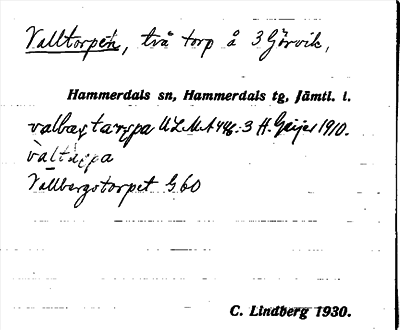 Valltorpen, två torp å 3 Görvik,
Hammerdals sn, Hammerdals tg, Jämtl. l.
valbæstarpa ULMA 446:3 H. Geijer 1910.
valtarpa
Vallbergstorpet G. 60
C. Lindberg 1930.